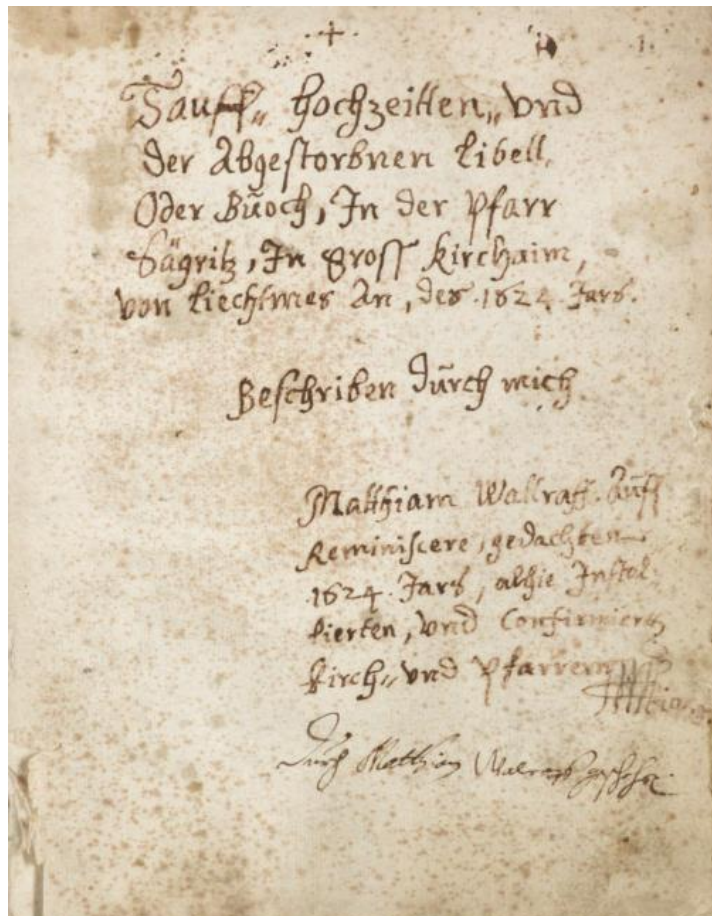 1.
Tauff„ Hochzeitten„ vnd
der Abgestorbnen Libell,
Oder Buoch, In der Pfarr
Sägritz, In gross Kirchaim,
von Liechtmes An, des .1624. Jars.
Beschriben durch mich
Matthiam Wallraff. Auff
Reminiscere, gedachten
.1624. Jars, alhie Instal„
lierten, vnd Confirmierten
Kirch„ vnd Pfarrern
durch Matthiam